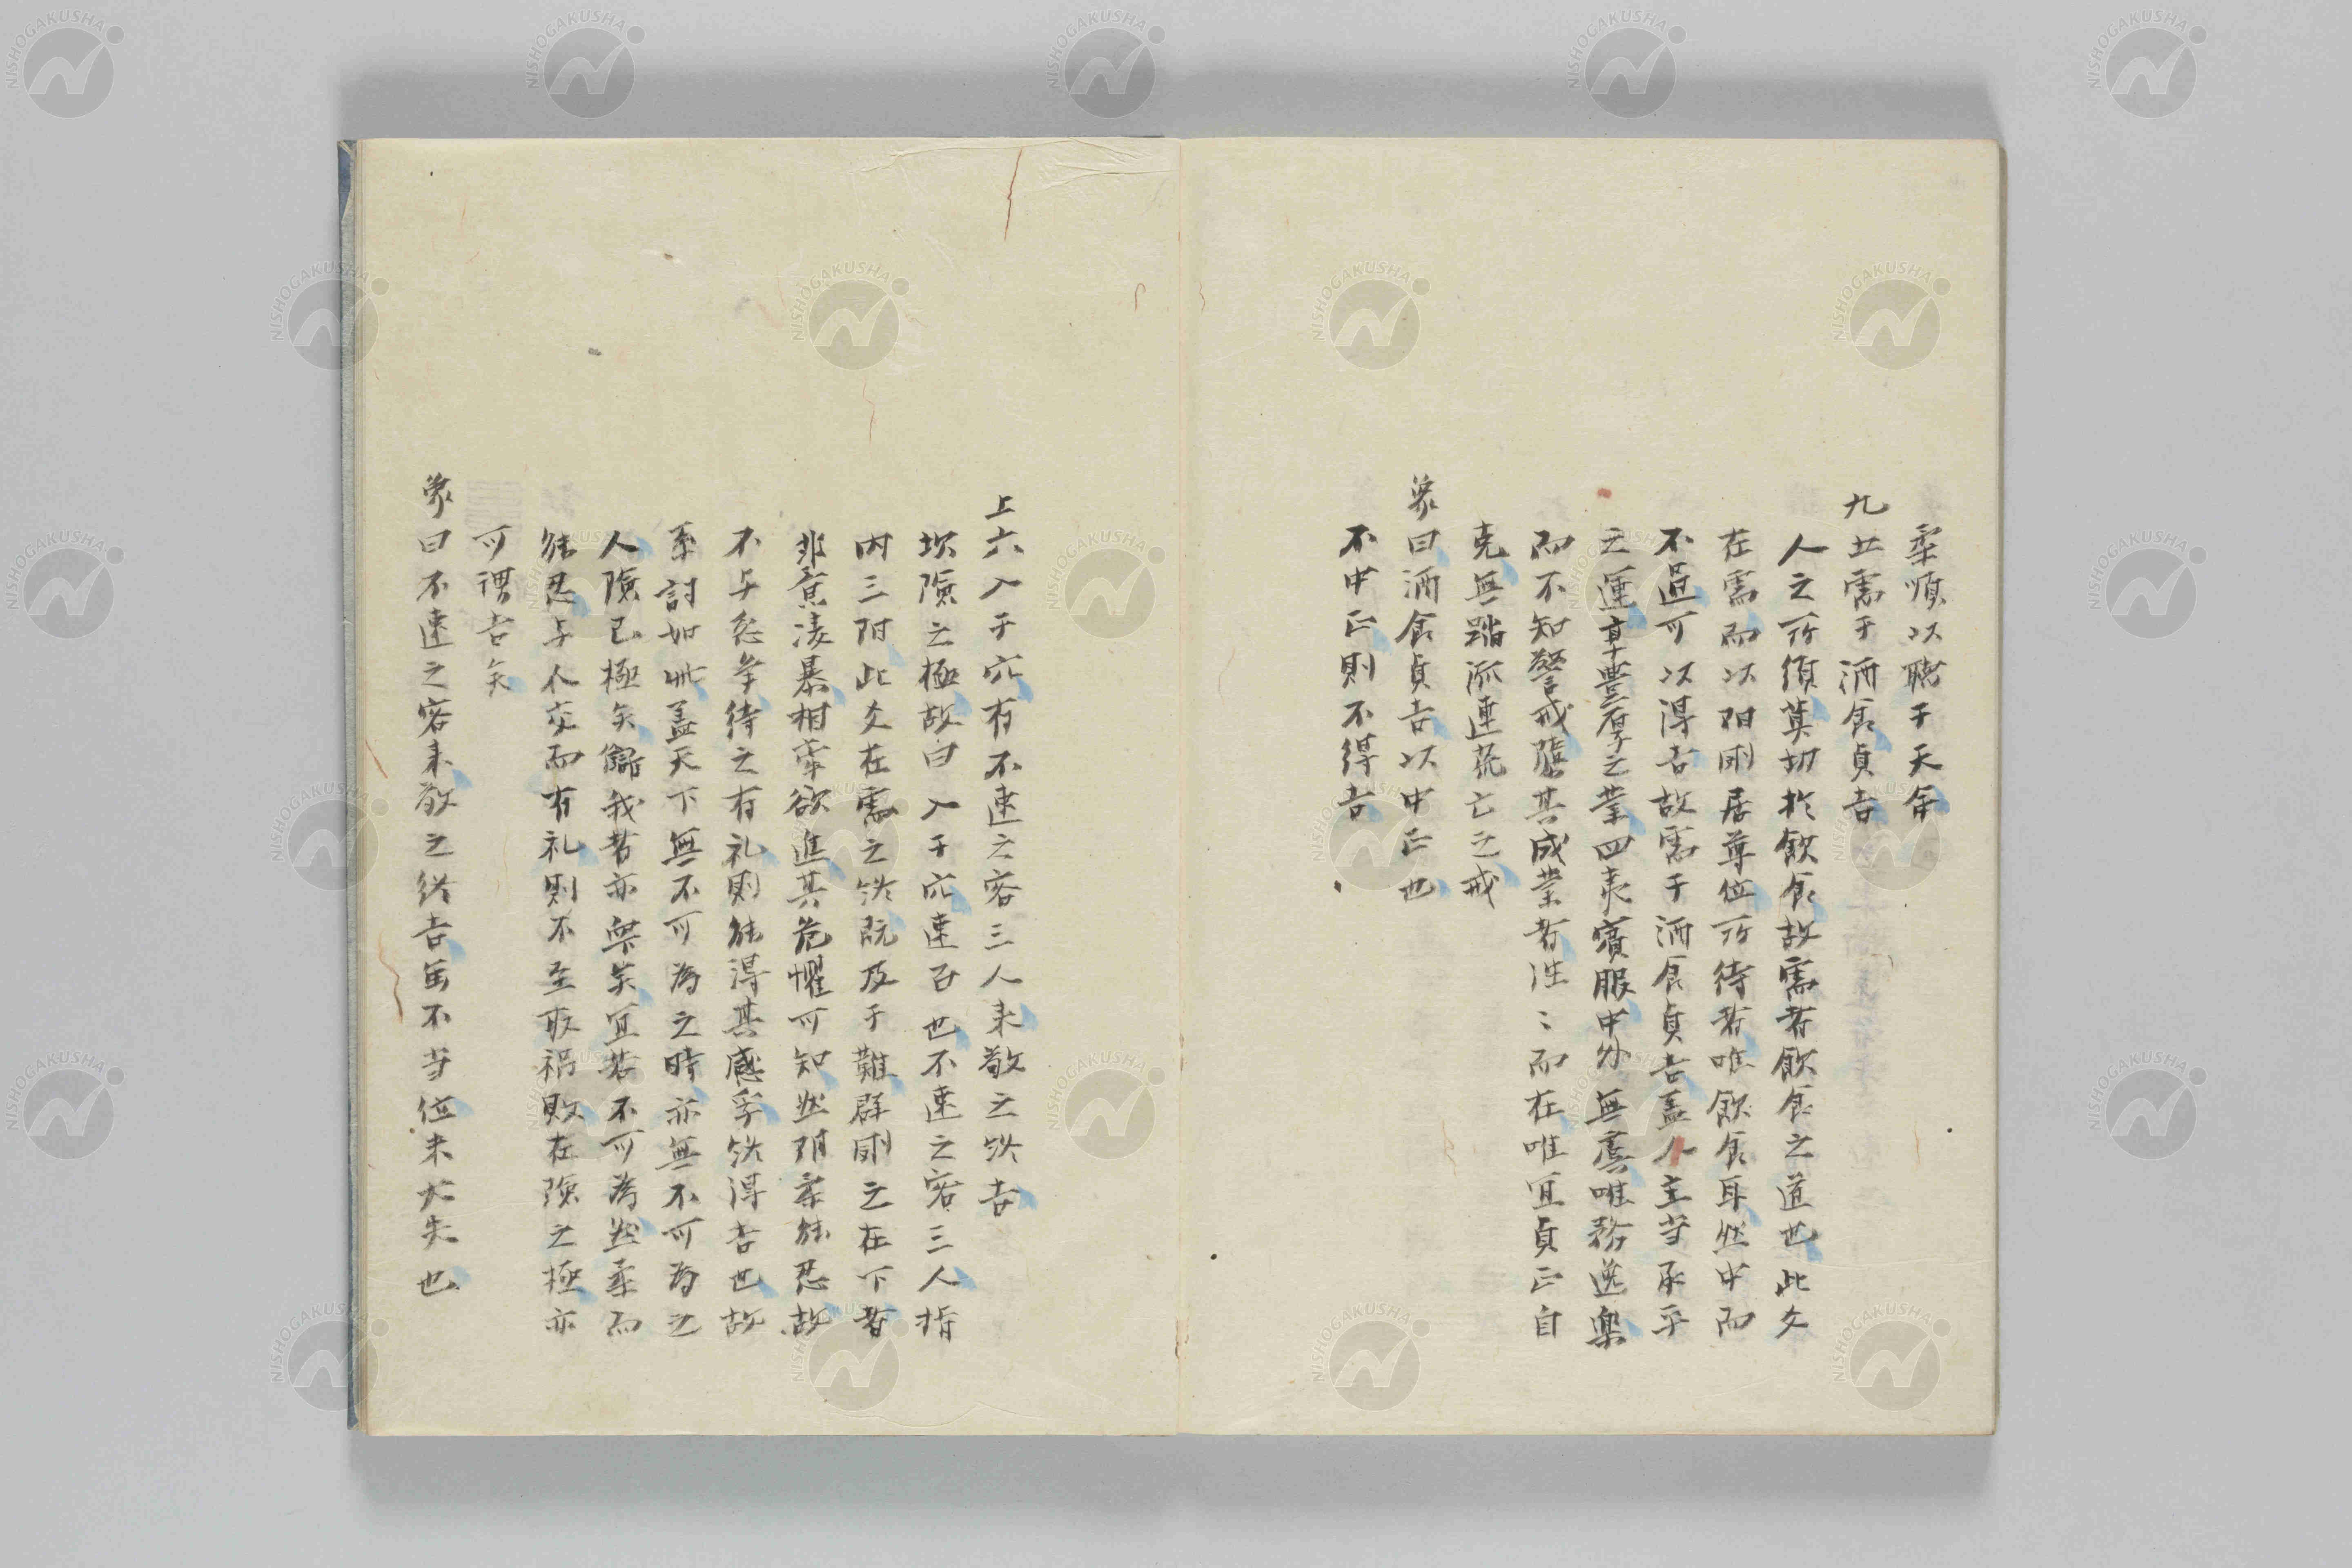 柔順以聴于天命
九五需于酒食貞吉
人之所須莫切於飲食故需者飲食之道也此爻
在需而以陽剛居尊位所待者唯飲食耳然中而
不過可以得吉故需于酒食貞吉蓋人主当承平
之運享豊厚之業四夷賓服中外無虞唯務逸楽
而不知警戒隳其成業者往〻而在唯宜貞正自
克無踏流連荒亡之戒
象曰酒食貞吉以中正也
不中正則不得吉
上六入于穴有不速之客三人来敬之終吉
坎険之極故曰入于穴速召也不速之客三人指
内三陽此爻在需之終既及于難群剛之在下者
非意凌暴相牽欲進其危懼可知然陰柔能忍故
不与忿争待之有礼則能得其感孚終得吉也故
系討如此蓋天下無不可為之時亦無不可為之
人険已極矣讎我者亦与矣宜若不可為然柔而
能忍与人交而有礼則不至取禍敗在険之極亦
可謂吉矣
象曰不速之客来敬之終吉虽不当位未大失也
NISHOGAKUSHA